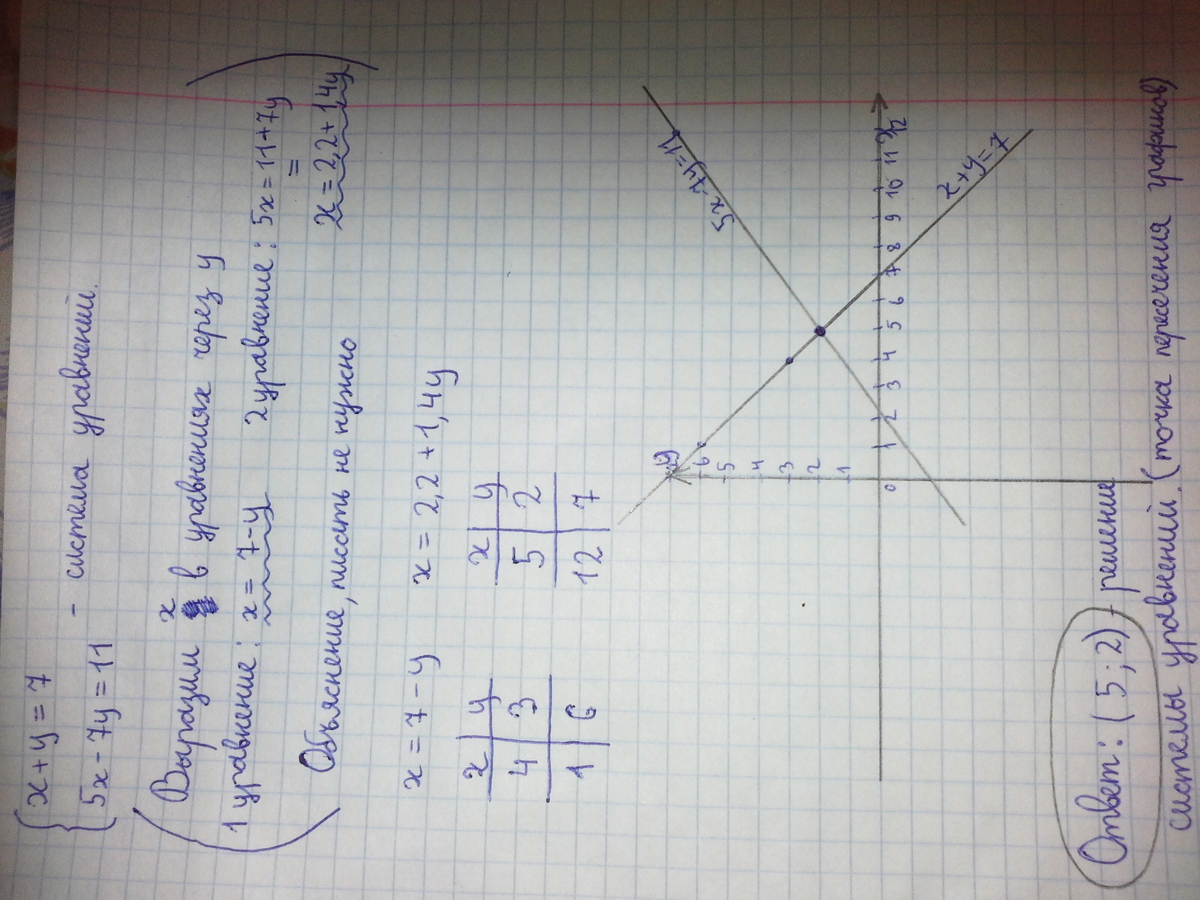 x + y = 7
5x - 7y = 11
- система уравнений.
Выразим x в уравнениях через y
1 уравнение: x = 7 - y
2 уравнение: 5x = 11 + 7y
=
x = 2,2 + 1,4y
Объяснение, писать не нужно
x = 7 - y
x = 2,2 + 1,4y
x y
4 3
1 6
x y
5 2
12 7
y
6
5
4
3
2
1
0
1 2 3 4 5 6 7 8 9 10 11 12
x
5x-7y=11
x+y=7
Ответ: (5; 2) - решение
системы уравнений. (точка пересечения графиков)